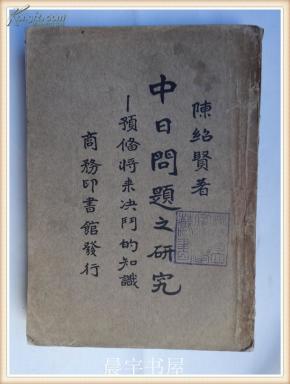 陳紹賢著
中日問題之研究
—預备將来决鬥的知識
商務印書館發行
晨宇书屋